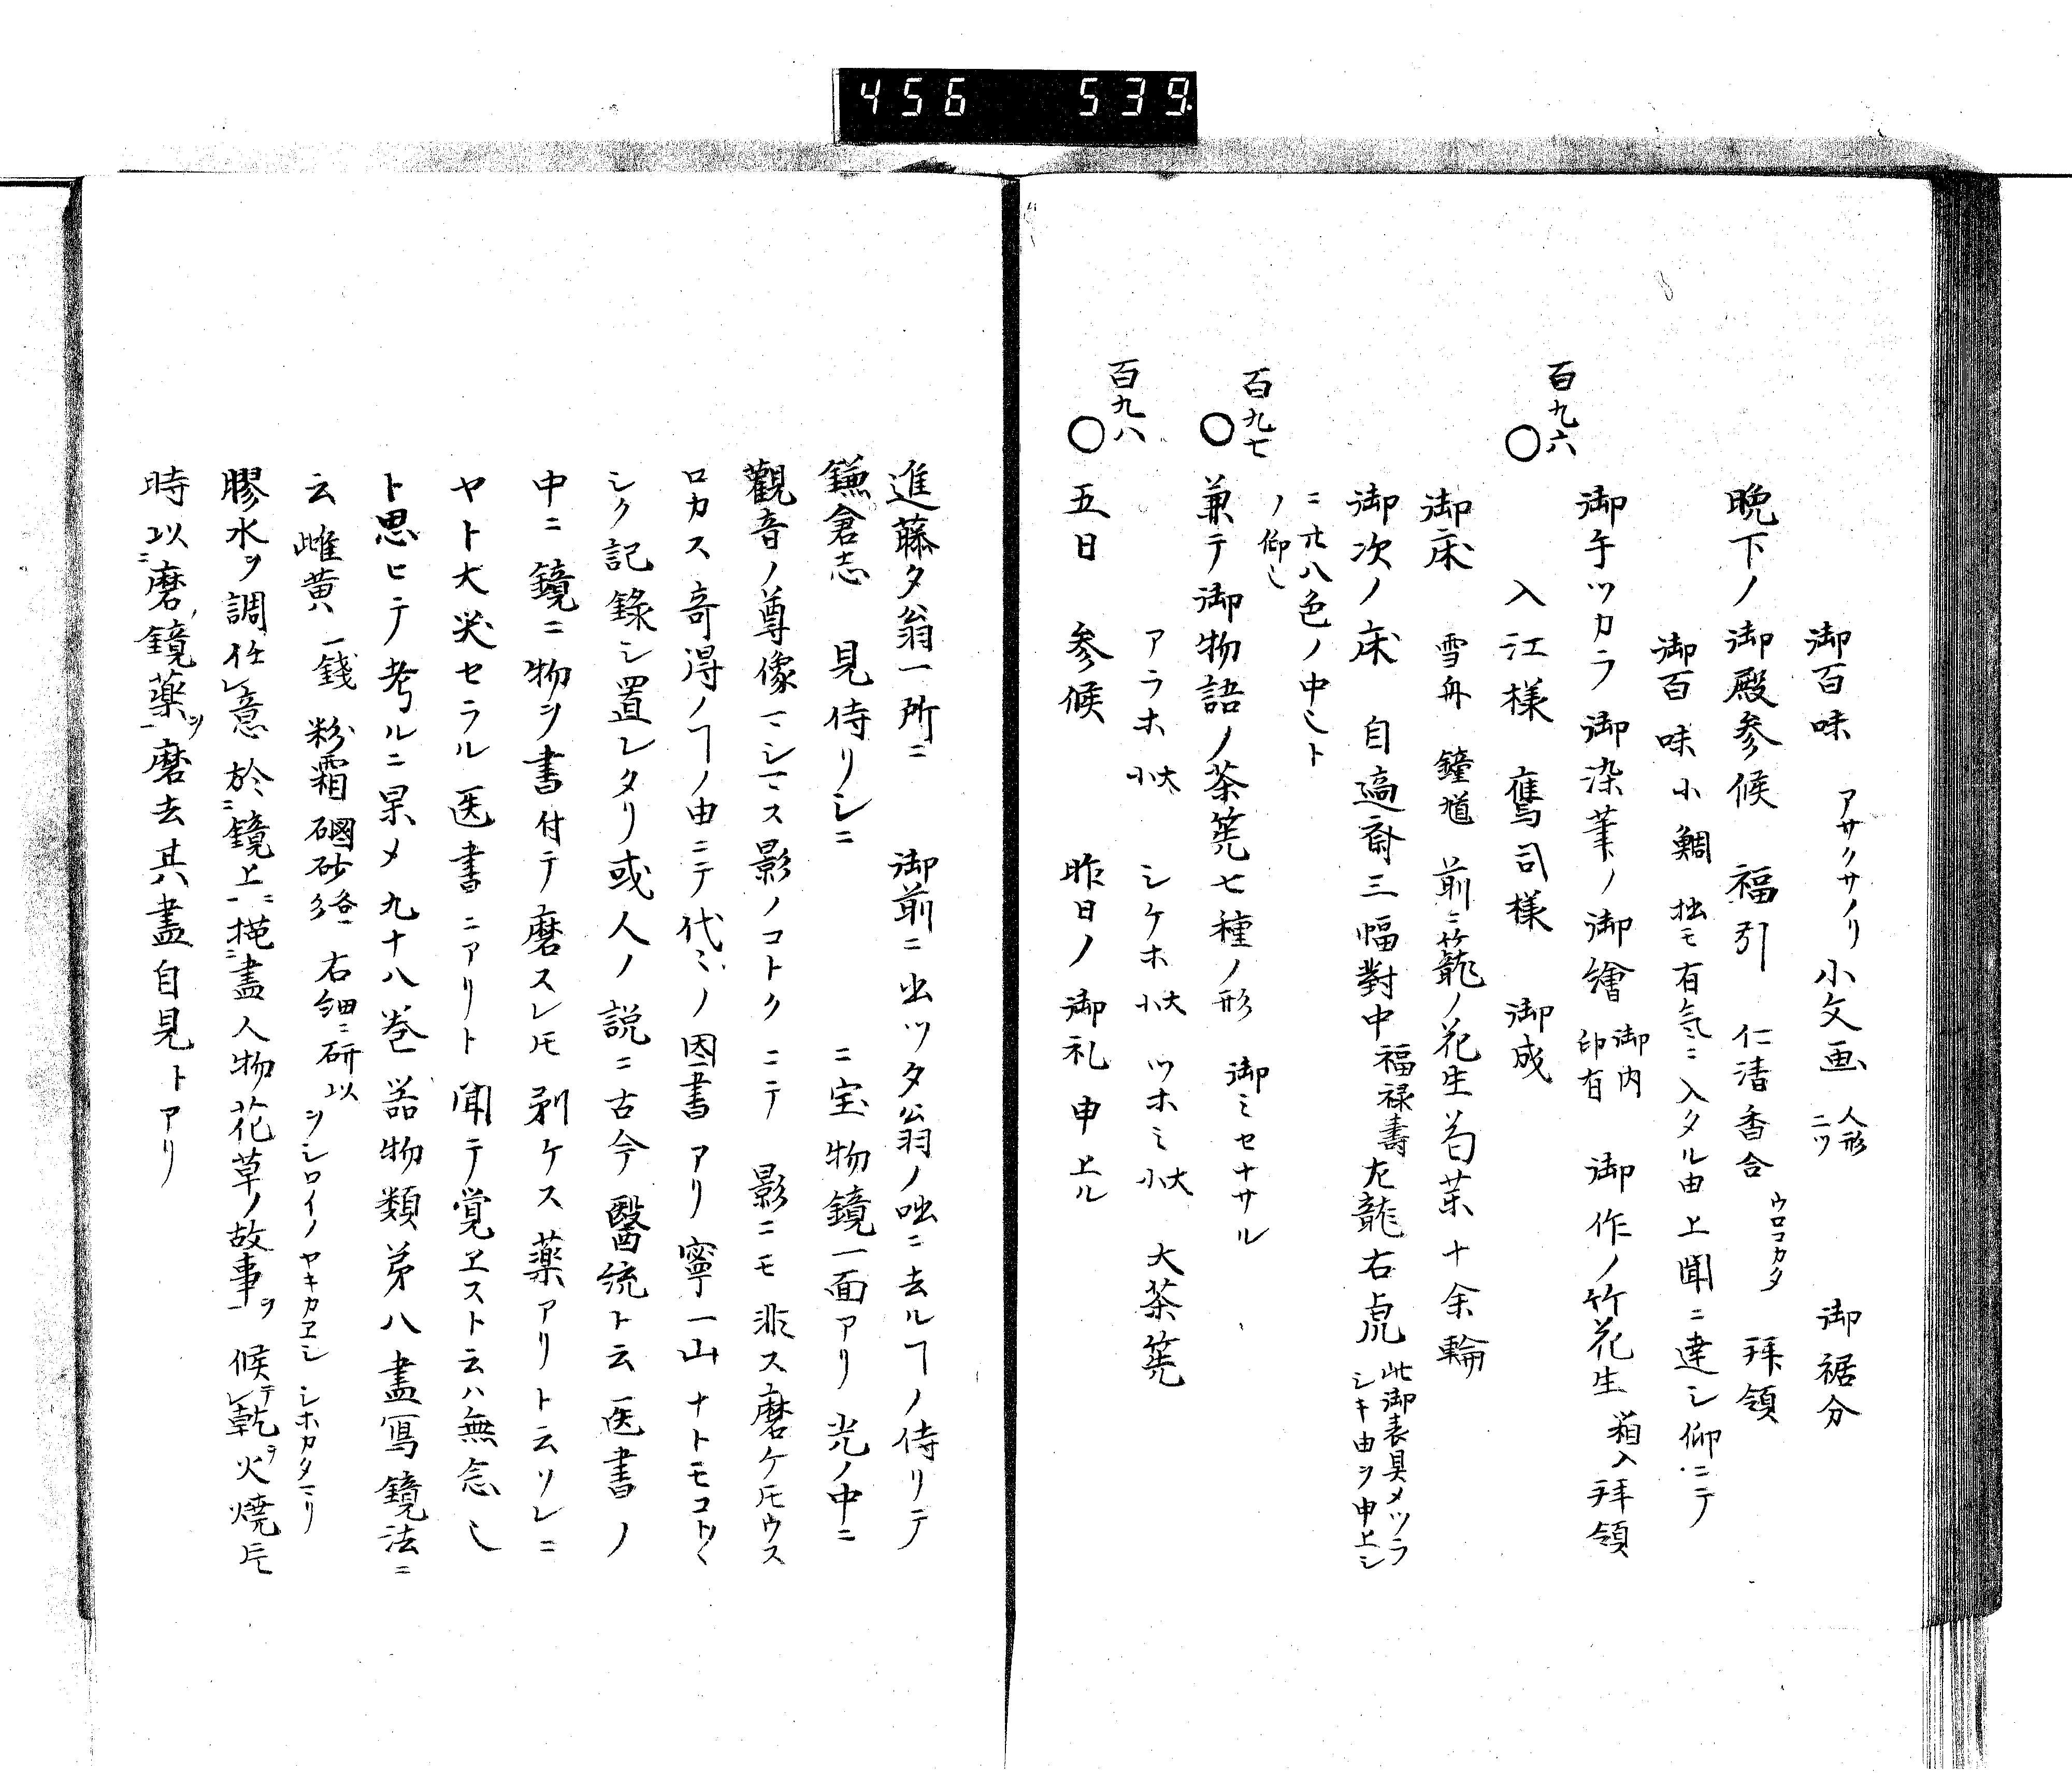 456 539.
御百味 アサクサノリ 小文画 人形ニツ 御裾分
晩下ノ御殿参候 福引 仁清香合 ウロコカタ 拝領
御百味小鯛 拙モ有気ニ入タル由上聞ニ達シ仰ニテ
御手ツカラ御染筆ノ御繪 御内印有 御作ノ竹花生 箱入 拝領
百九六
○ 入江様 鷹司様 御成
御床 雪舟 鐘馗 前ニ籠ノ花生芍薬十余輪
御次ノ床 自適斎三幅對中福禄壽左龍右虎 此御表具メツラシキ由ヲ申上シ
ニ廿八色ノ中シト
ノ仰シ
百九七
○ 兼テ御物語ノ茶筅七種ノ形 御ミセナサル
アラホ 大小 シケホ 大小 ツホミ 大小 大茶筅
百九八
○ 五日 参候 昨日ノ御礼申上ル
進藤夕翁一所ニ 御前ニ出ツタ翁ノ咄ニ去ルヿノ侍リテ
鎌倉志 見侍リシニ ニ宝物鏡一面アリ光ノ中ニ
觀音ノ尊像マシマス影ノコトクニテ 影ニモ非ス磨ケ𪜈ウス
ロカス奇淂ノヿノ由ニテ代ミノ因書アリ寧一山ナトモコト〱
シク記錄シ置レタリ或人ノ説ニ古今醫統ト云医書ノ
中ニ鏡ニ物ヲ書付テ磨スレ𪜈剥ケス薬アリト云ソレニ
ヤト大笑セラル医書ニアリト聞テ覚ヱスト云ハ無念シ
ト思ヒテ考ルニ果メ九十八巻器物類第八畫寫鏡法ニ
云雌黄一錢 粉霜 硇砂各多 右細ニ研以 ヲシロイノヤキカヱシ シホカタマリ
膠水ヲ調任レ意於ニ鏡上ニ描ニ畫人物花草ノ故事ヲ 候テ乾ヲ火焼片
時以ニ磨鏡薬ヲ磨去其畫自見トアリ